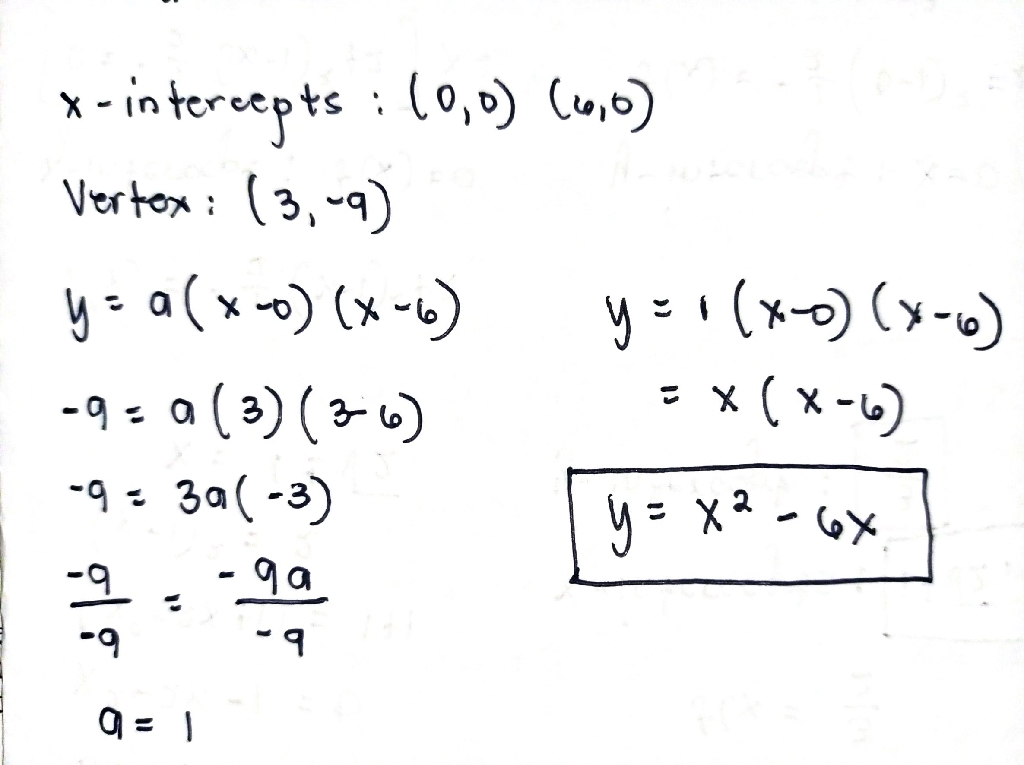 x-intercepts : (0,0) (6,0)
Vertex : (3,-9)
y = a(x-0)(x-6)
-9 = a(3)(3-6)
-9 = 3a(-3)
-9/-9 = -9a/-9
a = 1
y = 1(x-0)(x-6)
= x(x-6)
y = x² - 6x